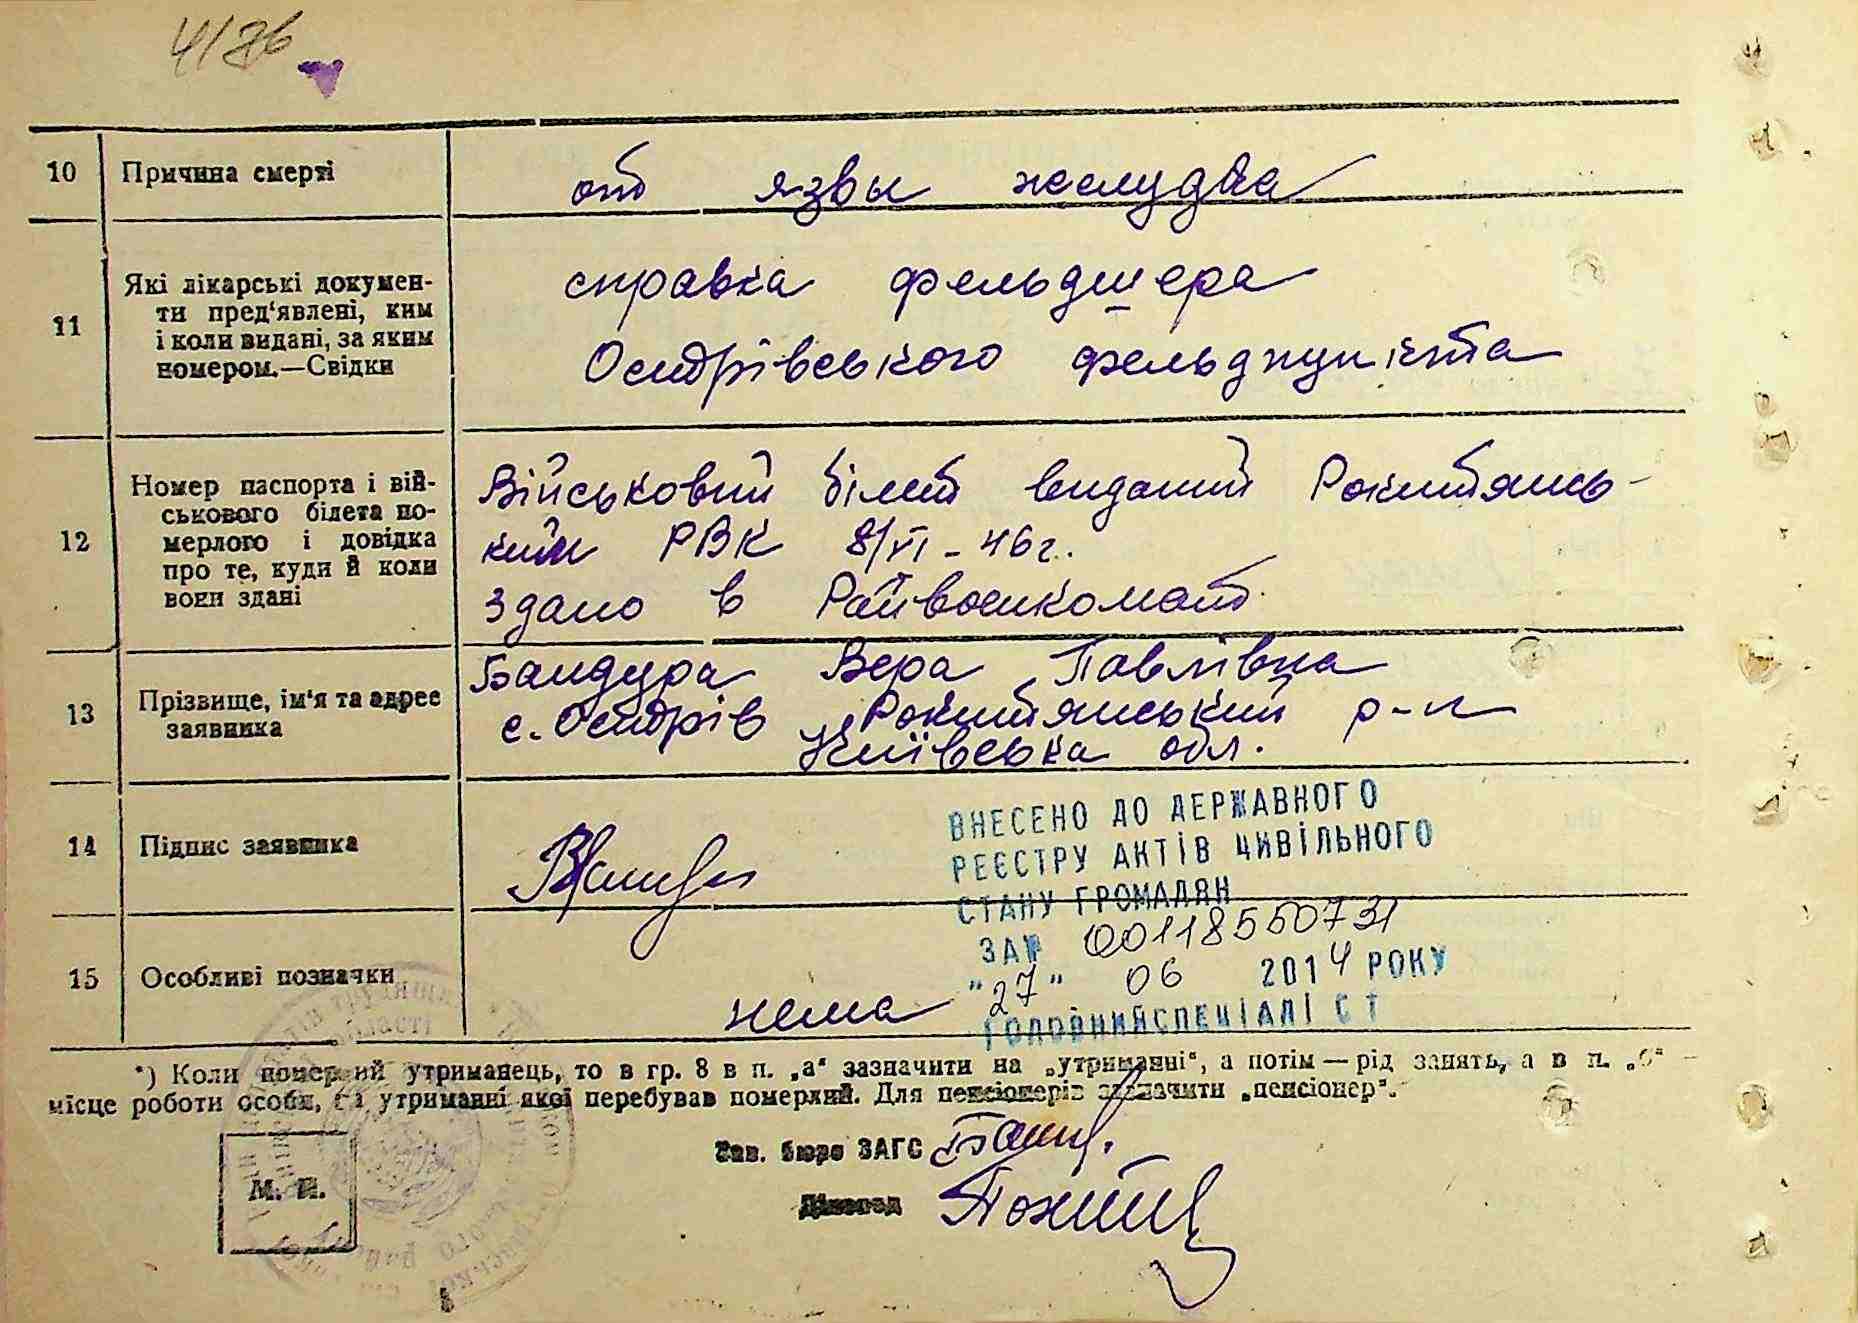 4/76
10 Причина смерті от язвы желудка
11 Які лікарські докумен-
ти пред'явлені, ким
і коли видані, за яким
номером.—Свідки
справка фельдшера
Острівського фельдпункта
12 Номер паспорта і вій-
ськового білета по-
мерлого і довідка
про те, куди й коли
вони здані
Військовий білет виданий Рокитянсь-
ким РВК 8/VI - 46 г.
Здано в Райвоенкомат.
13 Прізвище, ім'я та адрес
заявника
Бандура Вера Павлівна
с. Острів Рокитянський р-н
Київська обл.
14 Підпис заявника
ВНЕСЕНО ДО ДЕРЖАВНОГО
РЕЄСТРУ АКТІВ ЦИВІЛЬНОГО
СТАНУ ГРОМАДЯН
ЗА № 00118550731
"27" 06 2014 РОКУ
ГОЛОВНИЙ СПЕЦІАЛІСТ
15 Особливі позначки нема
*) Коли померлий утриманець, то в гр. 8 в п. „а" зазначити на „утриманні", а потім — рід занять, а в п. „б" —
місце роботи особи, на утриманні якої перебував померлий. Для пенсіонерів зазначити „пенсіонер".
Зав. бюро ЗАГС
М. П.
Діловод